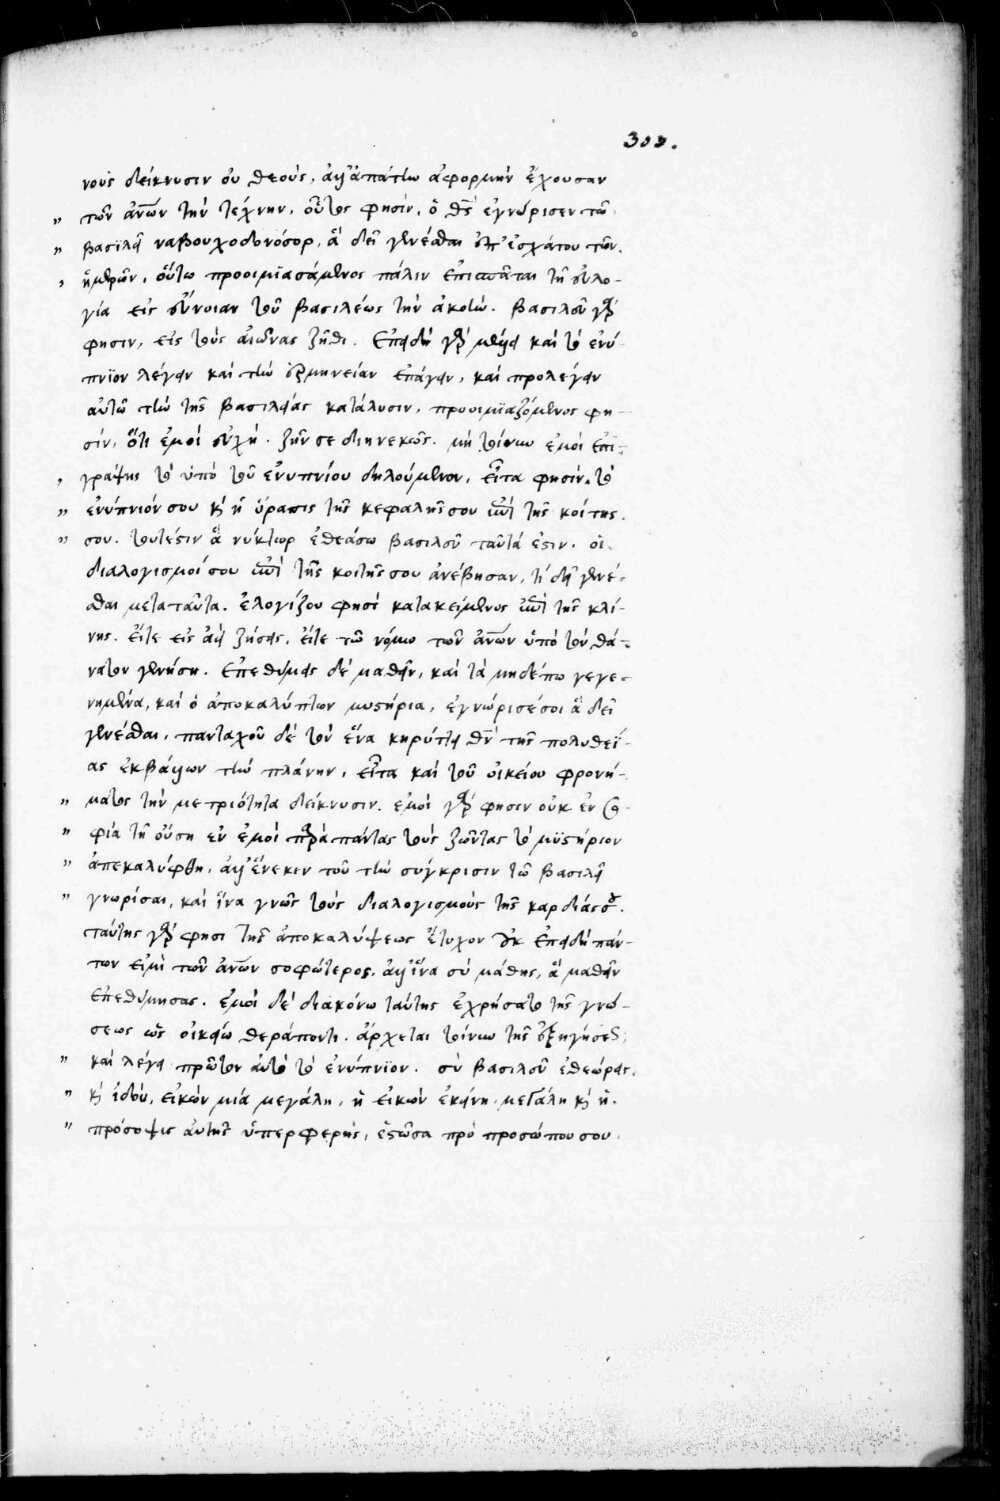 303.
νοὺς δείκνυσιν οὐ θεούς, ἀλλ' ἀπάτην ἀφορμὴν ἔχουσαν
„ τῶν ἀνων τὴν τέχνην, οὗτος φησὶν, ὁ θς ἐγνώρισεν τῶ
„ βασιλεῖ ναβουχοδονόσορ, ἃ δεῖ γενέσθαι ἐπ' ἐσχάτου τῶν
, ἡμερῶν, οὕτω προοιμιασάμενος πάλιν ἐπισπᾶται τῆ εὐλο-
γία εἰς εὔνοιαν τοῦ βασιλέως τὴν ἀκοὴν. βασιλεῦ γὰρ
φησιν, εἰς τοὺς αἰῶνας ζῆθι. ἐπειδὴ γὰρ μέλλει καὶ τὸ ἐνύ-
πνϊον λέγειν καὶ τὴν ἑρμηνείαν ἐπάγειν, καὶ προλέγειν
αὐτῶ τὴν τῆς βασιλείας κατάλυσιν, προοιμϊαζόμενος φη-
σίν, ὅτι ἐμοὶ εὐχὴ. ζῆν σε διηνεκῶς. μὴ τοίνυν ἐμοὶ ἐπι-
, γράψης τὸ ὑπὸ τοῦ ἐνυπνίου δηλούμενον, εἶτα φησίν. τὸ
„ ἐνύπνιόν σου κὶ ἡ ὅρασις τῆς κεφαλῆς σου ἐπὶ τῆς κοίτης
„ σου. τουτέστιν ἃ νύκτωρ ἐθεάσω βασιλεῦ ταῦτά ἐστιν. οἱ
διαλογισμοί σου ἐπὶ τῆς κοιτης σου ἀνέβησαν, τί δεῖ γενέ-
σθαι μετα ταῦτα. ἐλογίζου φησὶ κατακείμενος ἐπὶ τῆς κλί-
νης. εἴτε εἰς ἀεὶ ζήσεις, εἴτε τῶ νόμω τῶν ἀνων ὑπὸ τὸν θά-
νατον γενήση. ἐπεθύμεις δὲ μαθεῖν, καὶ τὰ μηδέπω γεγε-
νημένα, καὶ ὁ ἀποκαλύπτων μυστήρια, ἐγνώρισέ σοι ἃ δεῖ
γενέσθαι, πανταχοῦ δὲ τὸν ἕνα κηρύττει θν τῆς πολυθεΐ-
ας ἐκβάλλων τὴν πλάνην, εἶτα καὶ τοῦ οἰκείου φρονή-
„ ματος τὴν μετριότητα δείκνυσιν. ἐμοὶ γὰρ φησιν οὐκ ἐν σο-
„ φία τῆ οὔση ἐν ἐμοὶ παρὰ πάντας τοὺς ζῶντας τὸ μϋστήριον
„ ἀπεκαλύφθη, ἀλλ' ἕνεκεν τοῦ τὴν σύγκρισιν τῶ βασιλεῖ
„ γνωρίσαι, καὶ ἵνα γνῶς τοὺς διαλογισμοὺς τῆς καρδίας σου.
ταύτης γάρ φησι τῆς ἀποκαλύψεως ἔτυχον οὐκ ἐπειδὴ πάν-
των εἰμὶ τῶν ἀνων σοφώτερος, ἀλλ' ἵνα σὺ μάθης, ἃ μαθεῖν
ἐπεθύμησας. ἐμοὶ δὲ διακόνω ταύτης ἐχρήσατο τῆς γνώ-
σεως ὡς οἰκείω θεράποντι. ἄρχεται τοίνυν τῆς ἐξηγήσεως
„ καὶ λέγει πρῶτον αὐτὸ τὸ ἐνύπνϊον. σὺ βασιλεῦ ἐθεώρεις,
„ κὶ ἰδοὺ, εἰκὼν μία μεγάλη, ἡ εἰκὼν ἐκείνη μεγάλη κὶ ἡ
„ πρόσοψις αὐτῆς ὑπερφερὴς, ἑστῶσα πρὸ προσώπου σου.